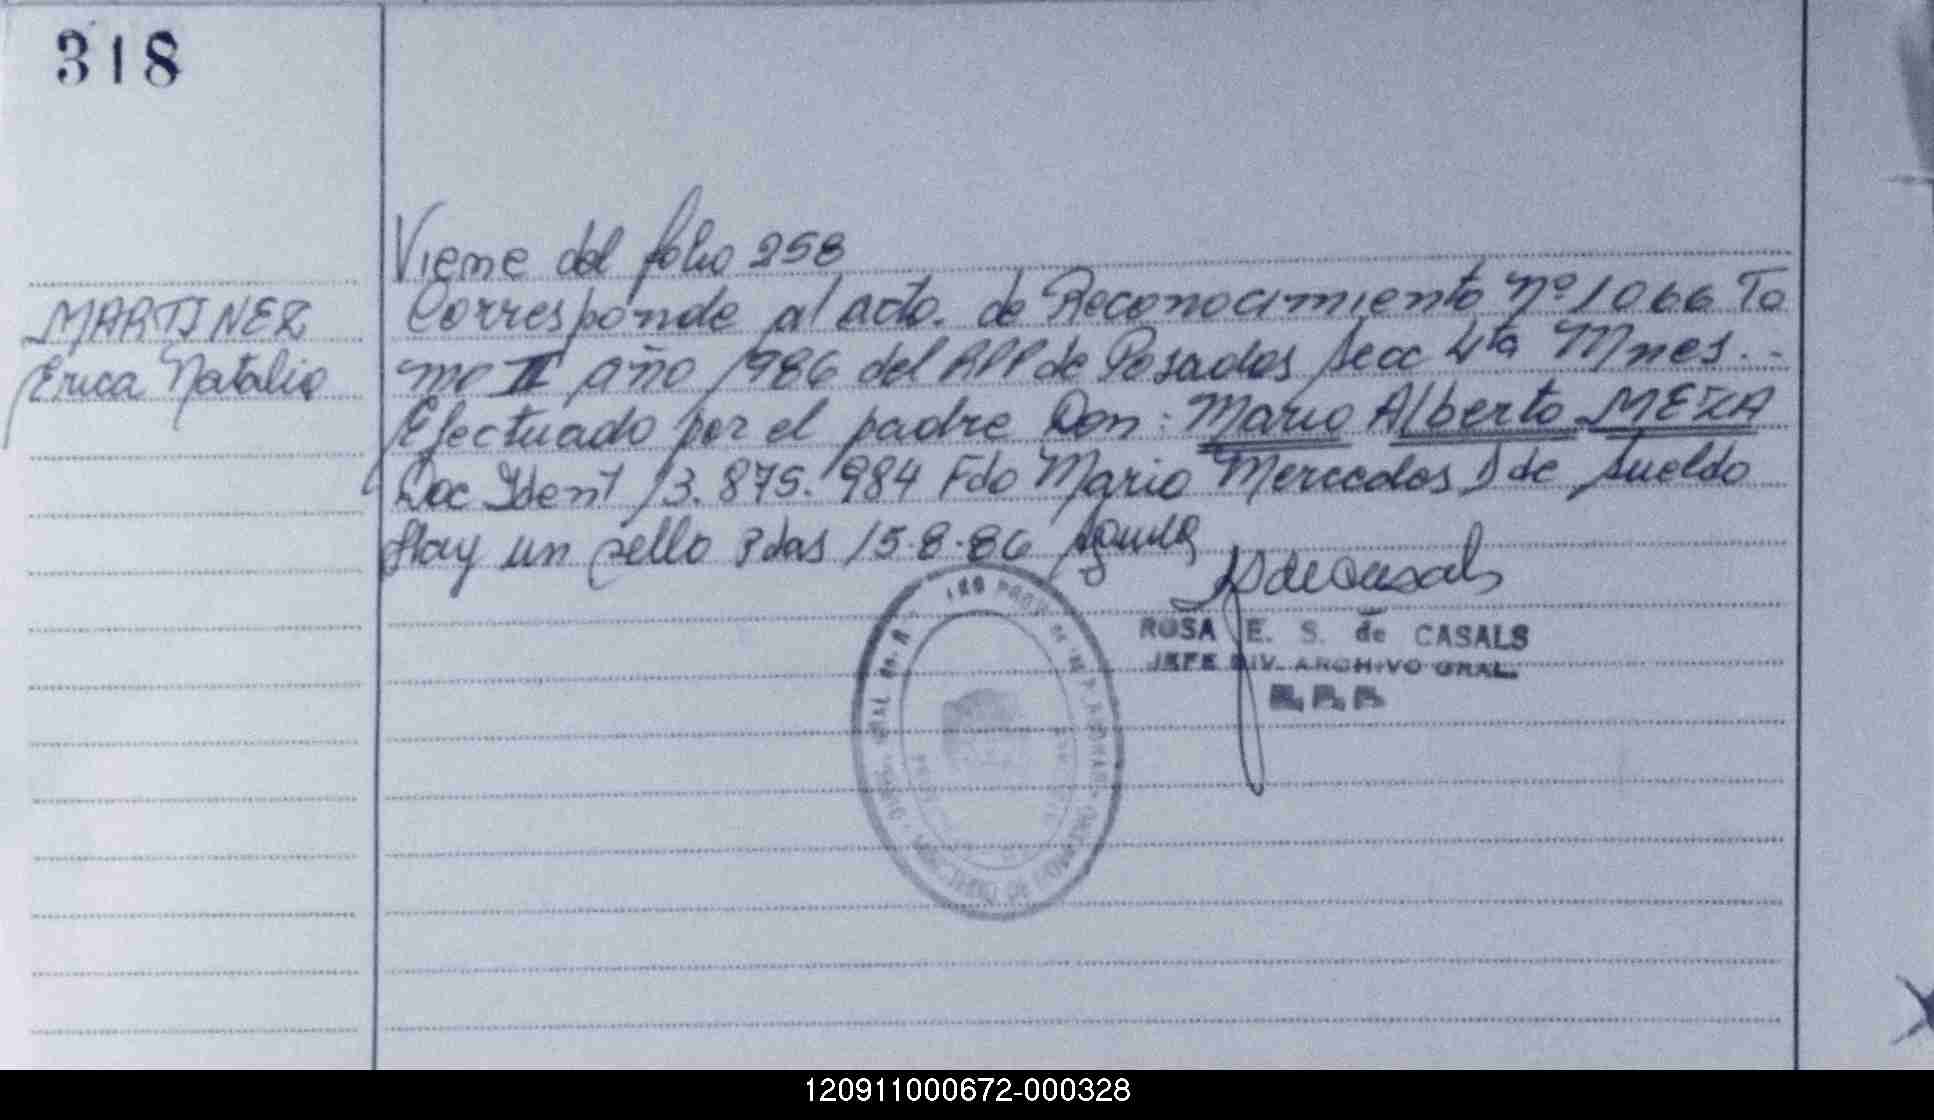 318
MARTINEZ
Erica Natalia
Viene del folio 258
Corresponde al acta. de Reconocimiento nº 1066 To
mo II año 1986 del RPP de Posadas Secc 4ta Mnes.-
Efectuado por el padre Don: Mario Alberto MEZA
Doc Ident 13.875.984 Fdo Maria Mercedes S de Sueldo
Hay un sello Pdas 15.8.86
ROSA E. S. de CASALS
JEFE DIV. ARCHIVO GRAL.
R.P.P.
120911000672-000328